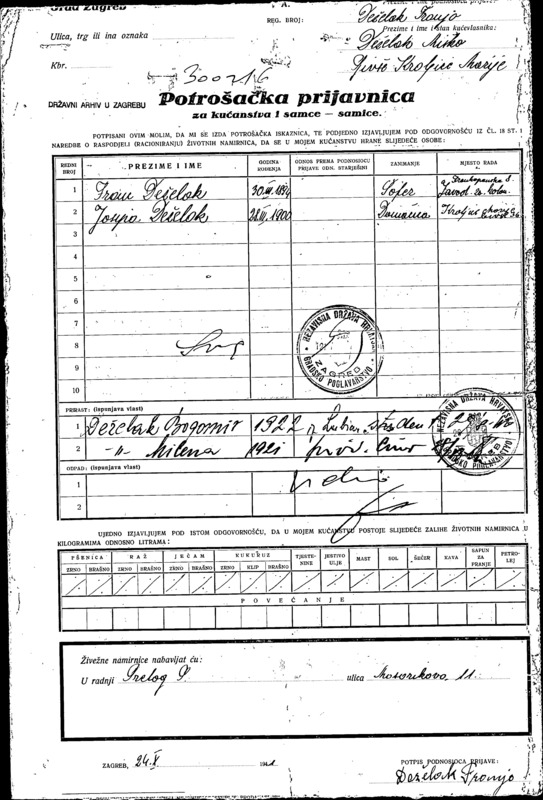 Grad Zagreb
REG. BROJ:
Deželak Franjo
Ulica, trg ili ina oznaka
Prezime i ime i stan kućevlasnika:
Deželak Mirko
Kbr.
Kraljice Marije
300216
DRŽAVNI ARHIV U ZAGREBU
Potrošačka prijavnica
za kućanstva i samce — samice.
POTPISANI OVIM MOLIM, DA MI SE IZDA POTROŠAČKA ISKAZNICA, TE PODJEDNO IZJAVLJUJEM POD ODGOVORNOŠĆU IZ ČL. 18 ST. 1
NAREDBE O RASPODJELI (RACIONIRANJU) ŽIVOTNIH NAMIRNICA, DA SE U MOJEM KUĆANSTVU HRANE SLIJEDEĆE OSOBE:
REDNI BROJ PREZIME I IME GODINA ROĐENJA ODNOS PREMA PODNOSIOCU PRIJAVE ODN. STARJEŠINI ZANIMANJE MJESTO RADA
1 Franjo Deželak 30.III.1894 Šofer
2 Josipa Deželak 28.III.1900 Domaćica
3
4
5
6
7
8
9
10
NEZAVISNA DRŽAVA HRVATSKA
GRADSKO POGLAVARSTVO
ZAGREB
PRIRAST: (ispunjava vlast)
1 Deželak Bogomir 1922
2 -"- Milena 1921
NEZAVISNA DRŽAVA HRVATSKA
GRADSKO POGLAVARSTVO
ODPAD: (ispunjava vlast)
1
2
UJEDNO IZJAVLJUJEM POD ISTOM ODGOVORNOŠĆU, DA U MOJEM KUĆANSTVU POSTOJE SLIJEDEĆE ZALIHE ŽIVOTNIH NAMIRNICA U
KILOGRAMIMA ODNOSNO LITRAMA:
PŠENICA RAŽ JEČAM KUKURUZ TJESTENINE JESTIVO ULJE MAST SOL ŠEĆER KAVA SAPUN ZA PRANJE PETROLEJ
ZRNO BRAŠNO ZRNO BRAŠNO ZRNO BRAŠNO ZRNO KLIP BRAŠNO
POVEĆANJE
Živežne namirnice nabavljat ću:
U radnji Prelog P. ulica Mosarikova 11.
ZAGREB, 24.X 1941
POTPIS PODNOSIOCA PRIJAVE:
Deželak Franjo